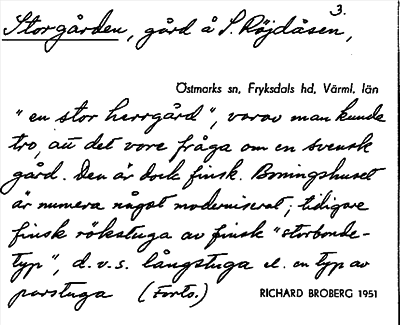 3.
Storgården, gård å S. Röjdåsen,
Östmarks sn, Fryksdals hd, Värml. län
"en stor herrgård", varav man kunde
tro, att det vore fråga om en svensk
gård. Den är dock finsk. Boningshuset
är numera något moderniserat; tidigare
finsk rökstuga av finsk "storbonde-
typ", d.v.s. långstuga el. en typ av
parstuga (Forts.)
RICHARD BROBERG 1951